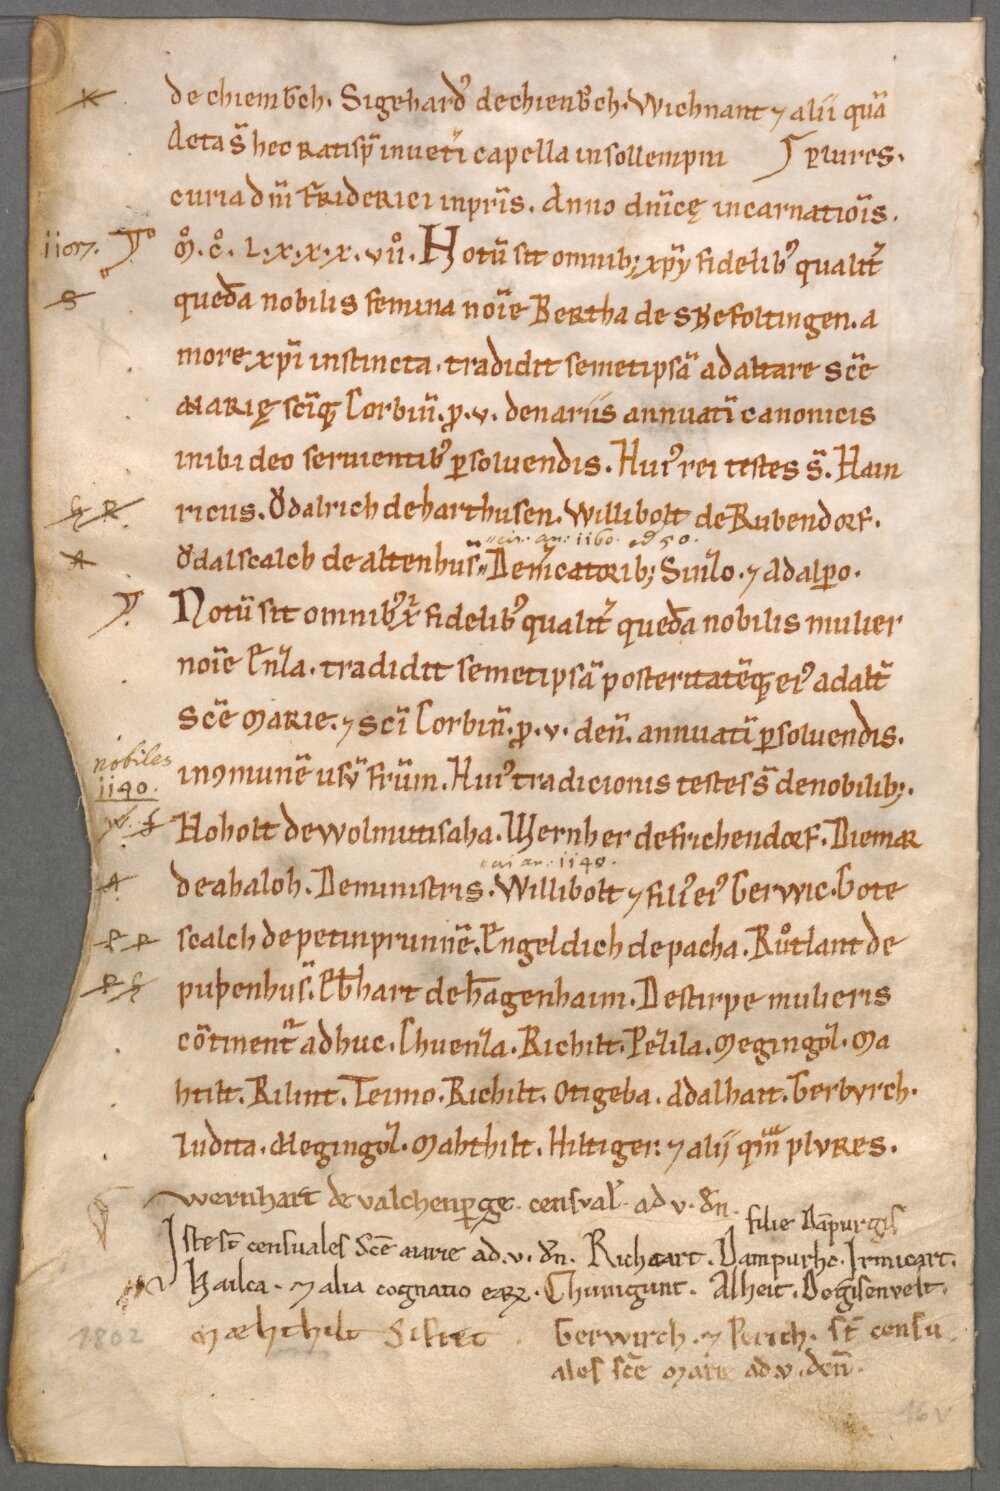 de chiemb̄ch. Sigehard᾽ de chienb̄ch. Wichnant ⁊ alii quā
Acta s̄ hec Ratisp̄ in uet̄i capella in sollempni plures.
curia dn̄i FRiderici in pr̄is. Anno dn̄icę incarnatiōis.
iiѹ.
M̊. C̊. L.x.x.x.vii̊. Notū sit omnib; xp̄i fidelib᾽ qualit᾽
quedā nobilis femina noīe Bertha de sBefoltingen. a
more xp̄i instincta. tradidit semetipsā ad altare sc̄e
MARIĘ sc̄iq; Corbin̄. ꝓ. v. denariis annuatī canonicis
inibi deo seruientib᾽ ꝑsoluendis. Hui᾽ rei testes s̄. Hain
ricus. Ŏdalrich de harthusen. Willibolt de Rubendorf.
cir. an: 1160. et 50.
Ŏdalscalch de altenhus̄. De uicatorib; Sinĺo. ⁊ Adalꝑo.
Notū sit omnib᾽ x̄ fidelib᾽ qualit᾽ quedā nobilis mulier
noīe Enźla. tradidit semetipsā posteritatēq; ei᾽ ad alt̄
Sc̄e MARIE. ⁊ Sc̄i Corbin̄. ꝓ. v. den̄. annuatī ꝑsoluendis.
nobiles
1140.
in ꝯmunē usū fr̄um. Hui᾽ tradicionis testes s̄ de nobilib;.
Hoholt de wolmutisaha. Wernher de frichendorf. Diemar
cir an: 1140.
de ahaloh. De ministris. Willibolt ⁊ fili᾽ ei᾽ Gerwic. Gote
scalch de petinprunnē. Engeldich de pacha. Růtlant de
pupenhus̄. Eb̄hart de hagenhaim. De stirpe mulieris
cōtinent᾽ adhuc. Chuenźla. Richilt. Peźlila. Megingoź. Ma
htilt. Rilint. Teimo. Richilt. Otigeba. Adalhait. Gerburch.
Iudita. Megingoź. Mahthilt. Hiltiger. ⁊ alij qm̄ plvres.
Wernhart de valchenꝑge. censual̄. ad v. d̄n.
filie Dāpurgis
Iste st̄ censuales Sc̄e Marie ad. v. d̄n. Richkart. Dampurhc. Irmicart.
Hailca. ⁊ alia cognatio eaꝝ. Chunigunt. Alheit.
Mæhthilt Gerwirch. ⁊ st̄ censu
ales sc̄e Marie ad v. den̄.
1802
16v